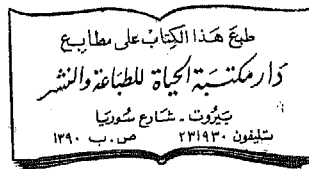 طبع هذا الكِتابُ على مطابع
دَار مكتبَة الحيَاة للطبَاعَة والنشر
بَيروت - شارع سُوريَا
تليفون ٢٣١٩٣٠ ص.ب ١٣٩٠